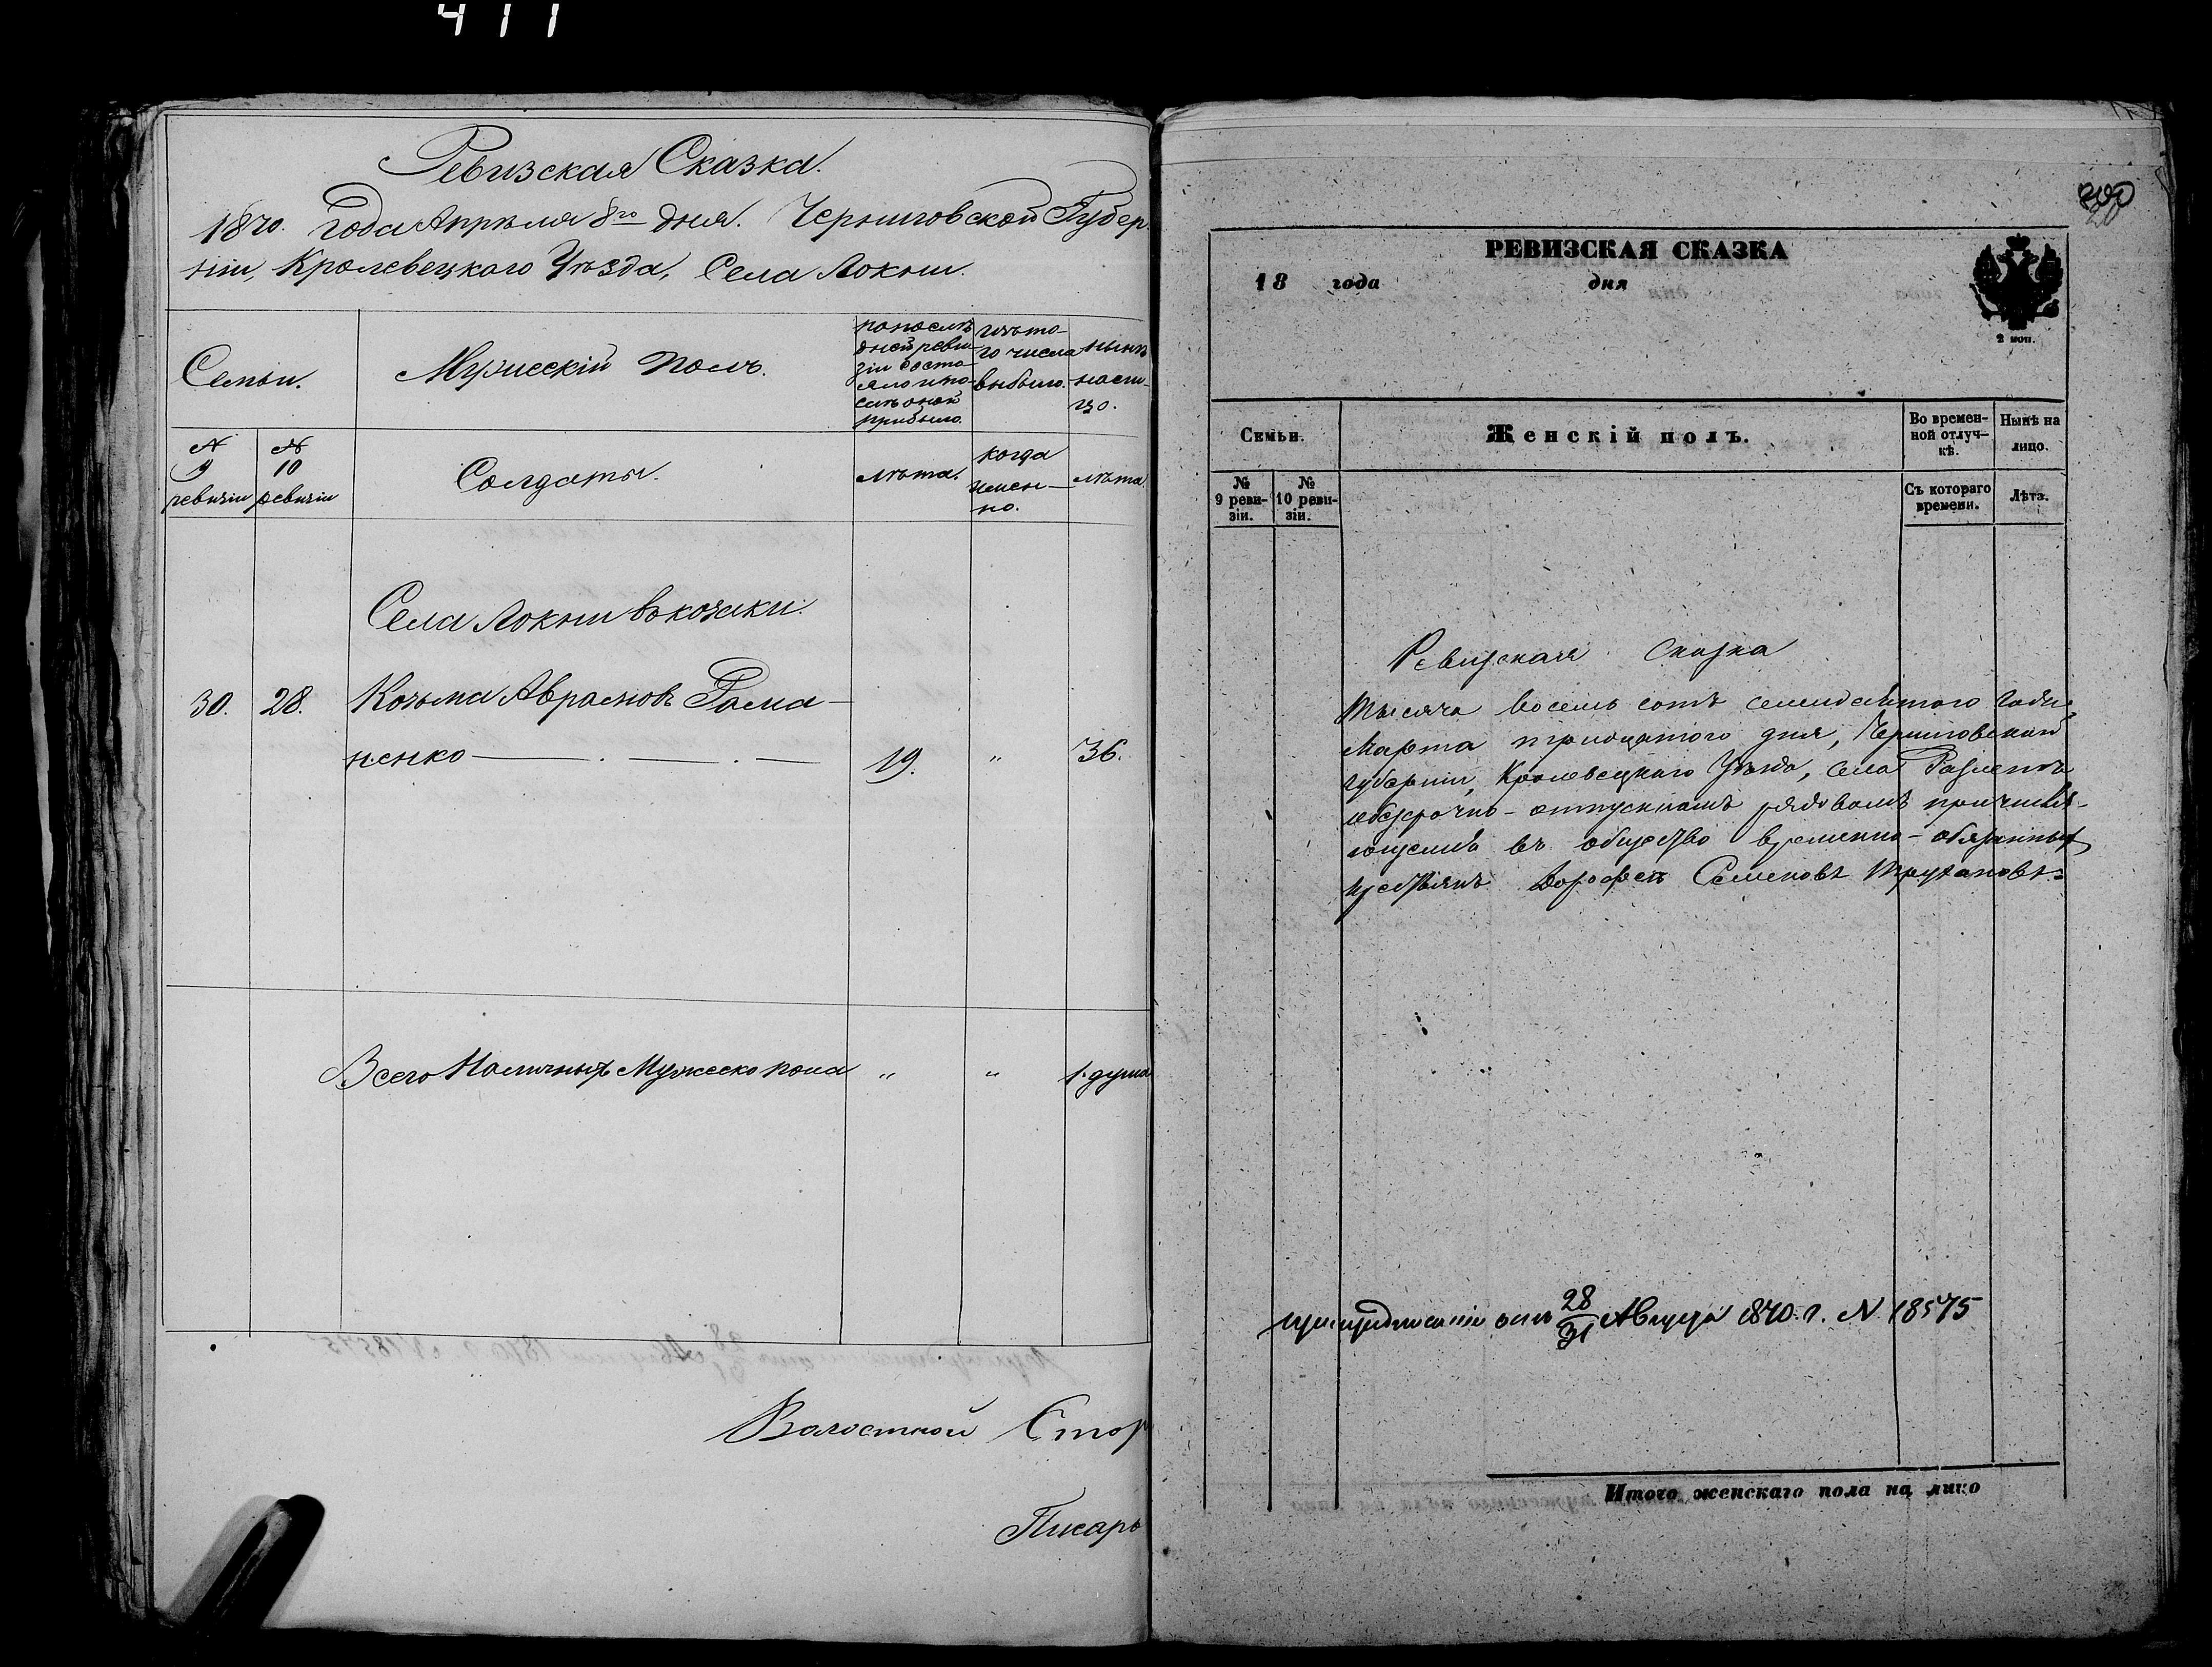 411
Ревизская Сказка.
1870. года Апрѣля 8го дня. Черниговской Губер
ніи, Кролевецкаго Уѣзда, Села Локни.
Семьи.
Мужескій полъ.
по послѣ
дней реви
зіи состо
яло и по
слѣ оной
прибыло.
Изъ то
го числа
выбыло.
нынѣ
на ли
цо.
№
9
ревизіи
№
10
ревизіи
Солдаты.
лѣта.
когда
имен
но.
лѣта.
Села Локни въ козаки.
30. 28. Козьма Аврамовъ Рома
ненко 19. " 36.
Всего Наличныхъ Мужеско пола " " 1. душа
Волостной Стар
Писарь
200
20
РЕВИЗСКАЯ СКАЗКА
18 года дня
2 коп.
Семьи.
Женскій полъ.
Во времен-
ной отлуч-
кѣ.
Нынѣ на
лицо.
№
9 реви-
зіи.
№
10 реви-
зіи.
Съ котораго
времени.
Лѣта.
Ревизская Сказка
Тысяча восемь сотъ семидесятого года
Марта тридцатого дня, Черниговской
губерніи, Кролевецкаго Уѣзда, села
безсрочно-отпускномъ рядовомъ причисля-
ющемся въ общество временно-обязанныхъ
крестьянъ Дорофей Семеновъ Трухановъ
при предписаніи отъ 28/31 Августа 1870. г. № 18575
Итого женскаго пола на лицо